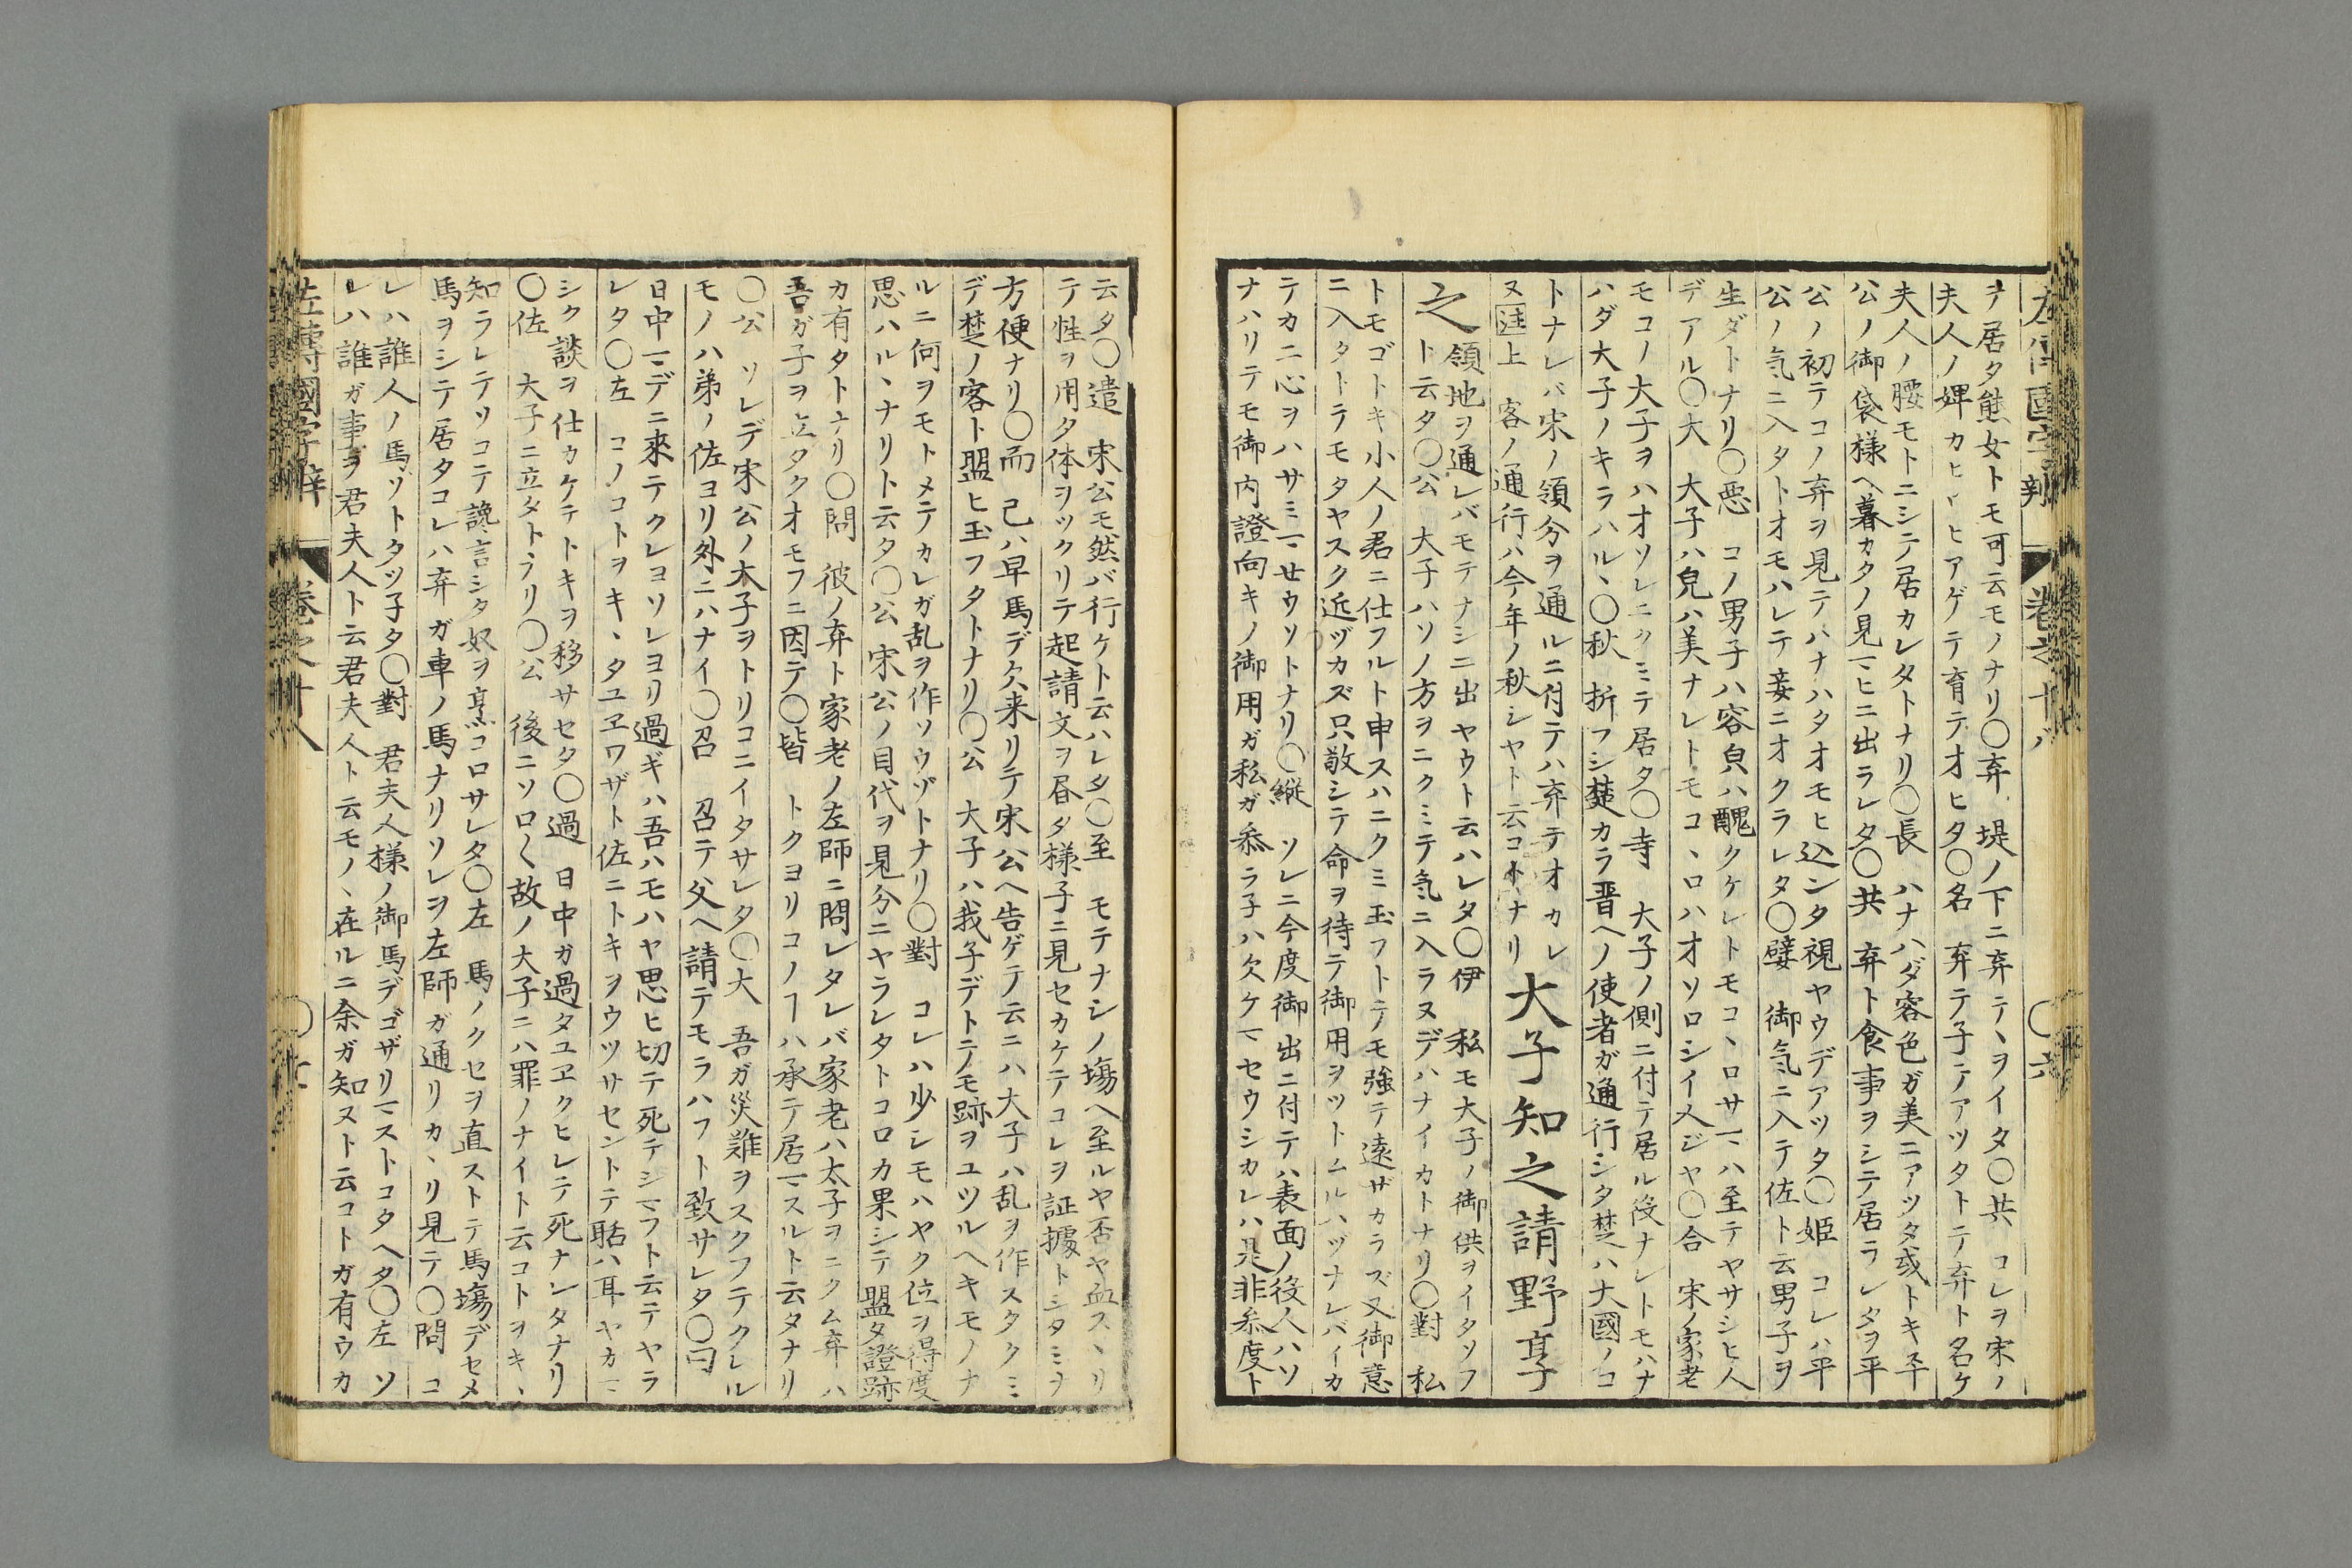 左傳國字辯 卷之十八 〇六
テ居タ熊女トモ可云モノナリ〇弃 堤ノ下ニ弃テヽヲイタ〇共 コレヲ宋ノ
夫人ノ婢カヒロヒアゲテ育テオヒタ〇名 弃テ子テアツタトテ弃ト名ケ
夫人ノ腰モトニシテ居カレタトナリ〇長 ハナハダ容色ガ美ニアツタ或トキ平
公ノ御袋様ヘ暮カタノ見マヒニ出ラレタ〇共 弃ト食事ヲシテ居ラレタヲ平
公ノ初テコノ弃ヲ見テハナハタオモヒ込ンタ視ヤウデアツタ〇姫 コレハ平
公ノ気ニ入タトオモハレテ妾ニオクラレタ〇嬖 御気ニ入テ佐ト云男子ヲ
生ダトナリ〇惡 コノ男子ハ容皃ハ醜クケレトモコヽロサマハ至テヤサシヒ人
デアル〇大 大子ハ皃ハ美ナレトモコヽロハオソロシイ人ジヤ〇合 宋ノ家老
モコノ大子ヲハオソレニクミテ居タ〇寺 大子ノ側ニ付テ居ル役ナレトモハナ
ハダ大子ノキラハルヽ〇秋 折フシ楚カラ晋ヘノ使者ガ通行シタ楚ハ大國ノコ
トナレバ宋ノ領分ヲ通ルニ付テハ弃テオカレ
ヌ註上 客ノ通行ハ今年ノ秋シヤト云コトナリ
大子知之請野享
之
領地ヲ通レバモテナシニ出ヤウト云ハレタ〇伊 私モ大子ノ御供ヲイタソフ
ト云タ〇公 大子ハソノ方ヲニクミテ気ニ入ラヌデハナイカトナリ〇對 私
トモゴトキ小人ノ君ニ仕フルト申スハニクミ玉フトテモ強テ遠ザカラズ又御意
ニ入タトテモタヤスク近ヅカズ只敬シテ命ヲ待テ御用ヲツトムルハヅナレバイカ
テカ二心ヲハサミマせウソトナリ〇縦 ソレニ今度御出ニ付テハ表面ノ役人ハソ
ナハリテモ御内證向キノ御用ガ私ガ叅ラ子ハ欠ケマセウシカレハ是非叅度ト
云タ〇遣 宋公モ然バ行ケト云ハレタ〇至 モテナシノ塲ヘ至ルヤ否ヤ血スヽリ
テ性ヲ用タ体ヲツクリテ起請文ヲ昏タ様子ニ見セカケテコレヲ証據トシタミヲ
方便ナリ〇而 己ハ早馬デ欠来リテ宋公ヘ告ゲテ云ニハ大子ハ乱ヲ作スタクミ
デ楚ノ客ト盟ヒ玉フタトナリ〇公 大子ハ我子デトテモ跡ヲユツルヘキモノナ
ルニ何ヲモトメテカレガ乱ヲ作ソウゾトナリ〇對 コレハ少シモハヤク位ヲ得度
思ハルヽナリト云タ〇公 宋公ノ目代ヲ見分ニヤラレタトコロカ果シテ盟タ證跡
カ有タトナリ〇問 彼ノ弃ト家老ノ左師ニ問レタレバ家老ハ太子ヲニクム弃ハ
吾ガ子ヲ立タクオモフニ因テ〇皆 トクヨリコノヿハ承テ居マスルト云タナリ
〇公 ソレデ宋公ノ大子ヲトリコニイタサレタ〇大 吾ガ災難ヲスクフテクレル
モノハ弟ノ佐ヨリ外ニハナイ〇召 召テ父ヘ請テモラハフト致サレタ〇曰
日中マデニ來テクレヨソレヨリ過ギハ吾ハモハヤ思ヒ切テ死テシマフト云テヤラ
レタ〇左 コノコトヲキヽタユヱワザト佐ニトキヲウツサセントテ聒ハ耳ヤカマ
シク談ヲ仕カケテトキヲ移サセタ〇過 日中ガ過タユヱクヒレテ死ナレタナリ
〇佐 大子ニ立タトナリ〇公 後ニソロ〱故ノ大子ニハ罪ノナイト云コトヲキヽ
知ラレテソコテ讒言シタ奴ヲ烹コロサレタ〇左 馬ノクセヲ直ストテ馬塲デセメ
馬ヲシテ居タコレハ弃ガ車ノ馬ナリソレヲ左師ガ通リカヽリ見テ〇問 コ
レハ誰人ノ馬ゾトタヅ子タ〇對 君夫人様ノ御馬デゴザリマストコタヘタ〇左 ソ
レハ誰ガ事ヲ君夫人ト云君夫人ト云モノヽ在ルニ余ガ知ヌト云コトガ有ウカ
左傳國字辯 卷之十八 〇七